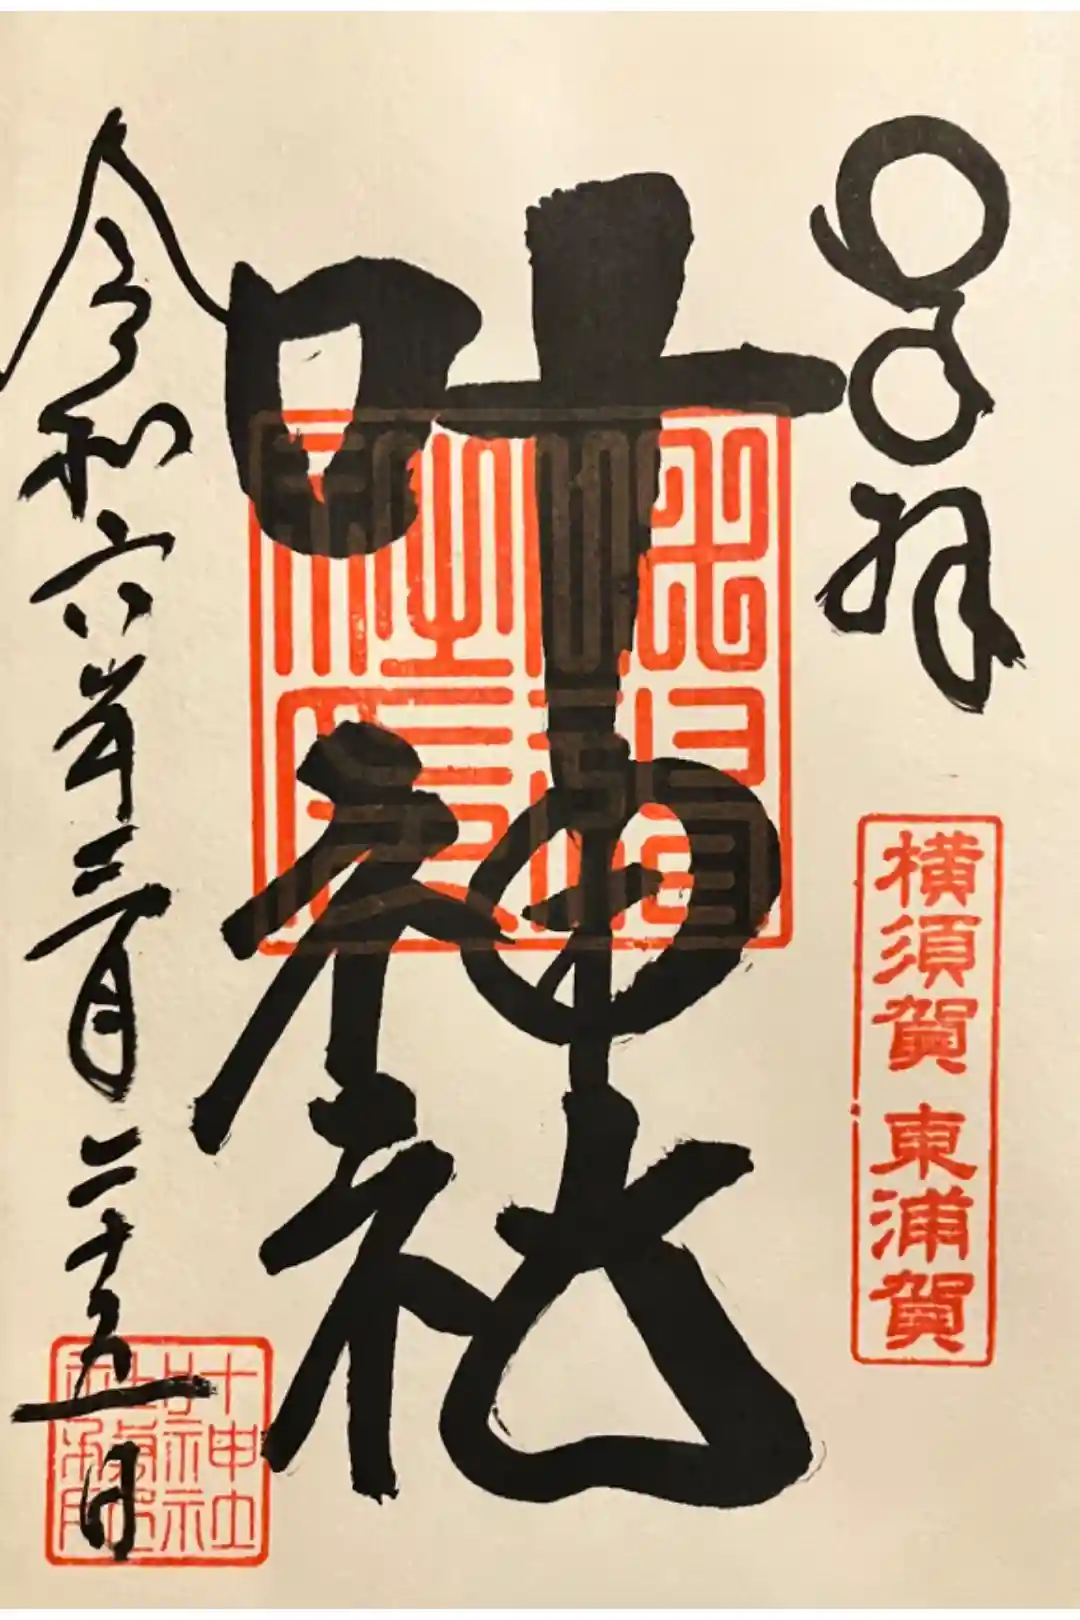 奉拝
横須賀 東浦賀
叶神社
令和六年三月二十五日
叶神社
社務所